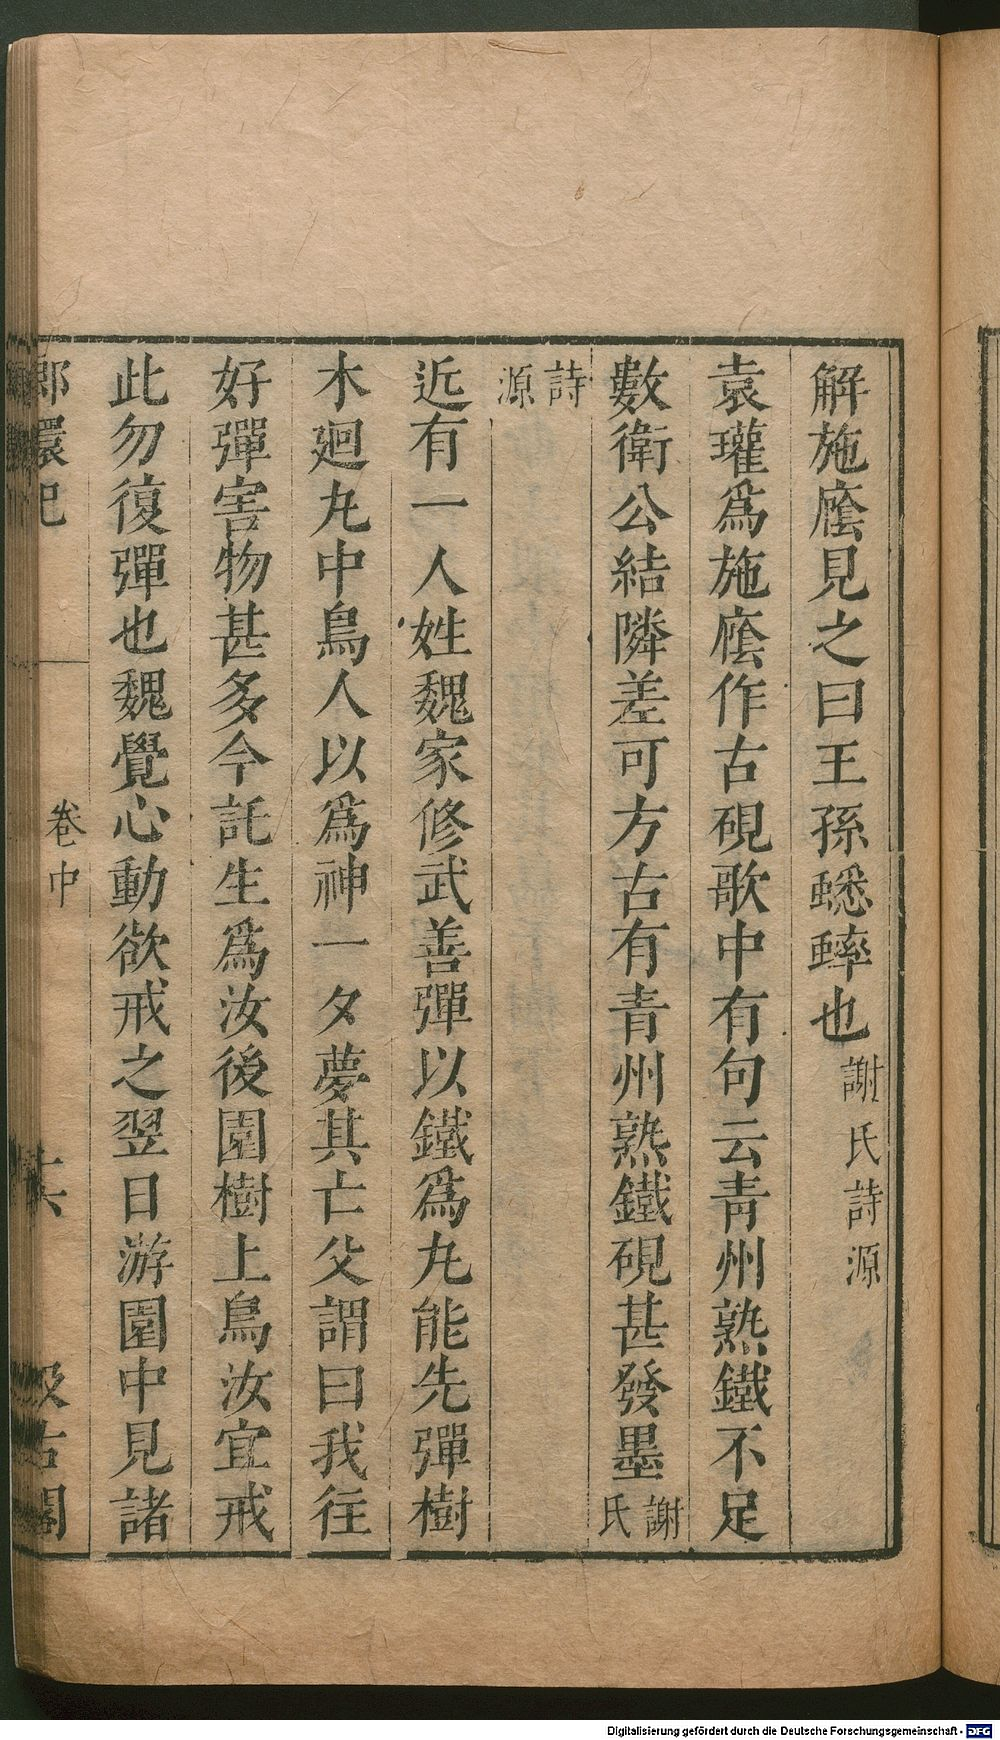 解施廕見之曰王孫蟋蟀也謝氏詩源
袁瓘爲施廕作古硯歌中有句云青州熟鐵不足
數衛公結隣差可方古有青州熟鐵硯甚發墨謝氏
詩源
近有一人姓魏家修武善彈以鐵爲丸能先彈樹
木廻丸中鳥人以爲神一夕夢其亡父謂曰我往
好彈害物甚多今託生爲汝後園樹上鳥汝宜戒
此勿復彈也魏覺心動欲戒之翌日游園中見諸
卷中
十六
汲古閣
Digitalisierung gefördert durch die Deutsche Forschungsgemeinschaft - DFG